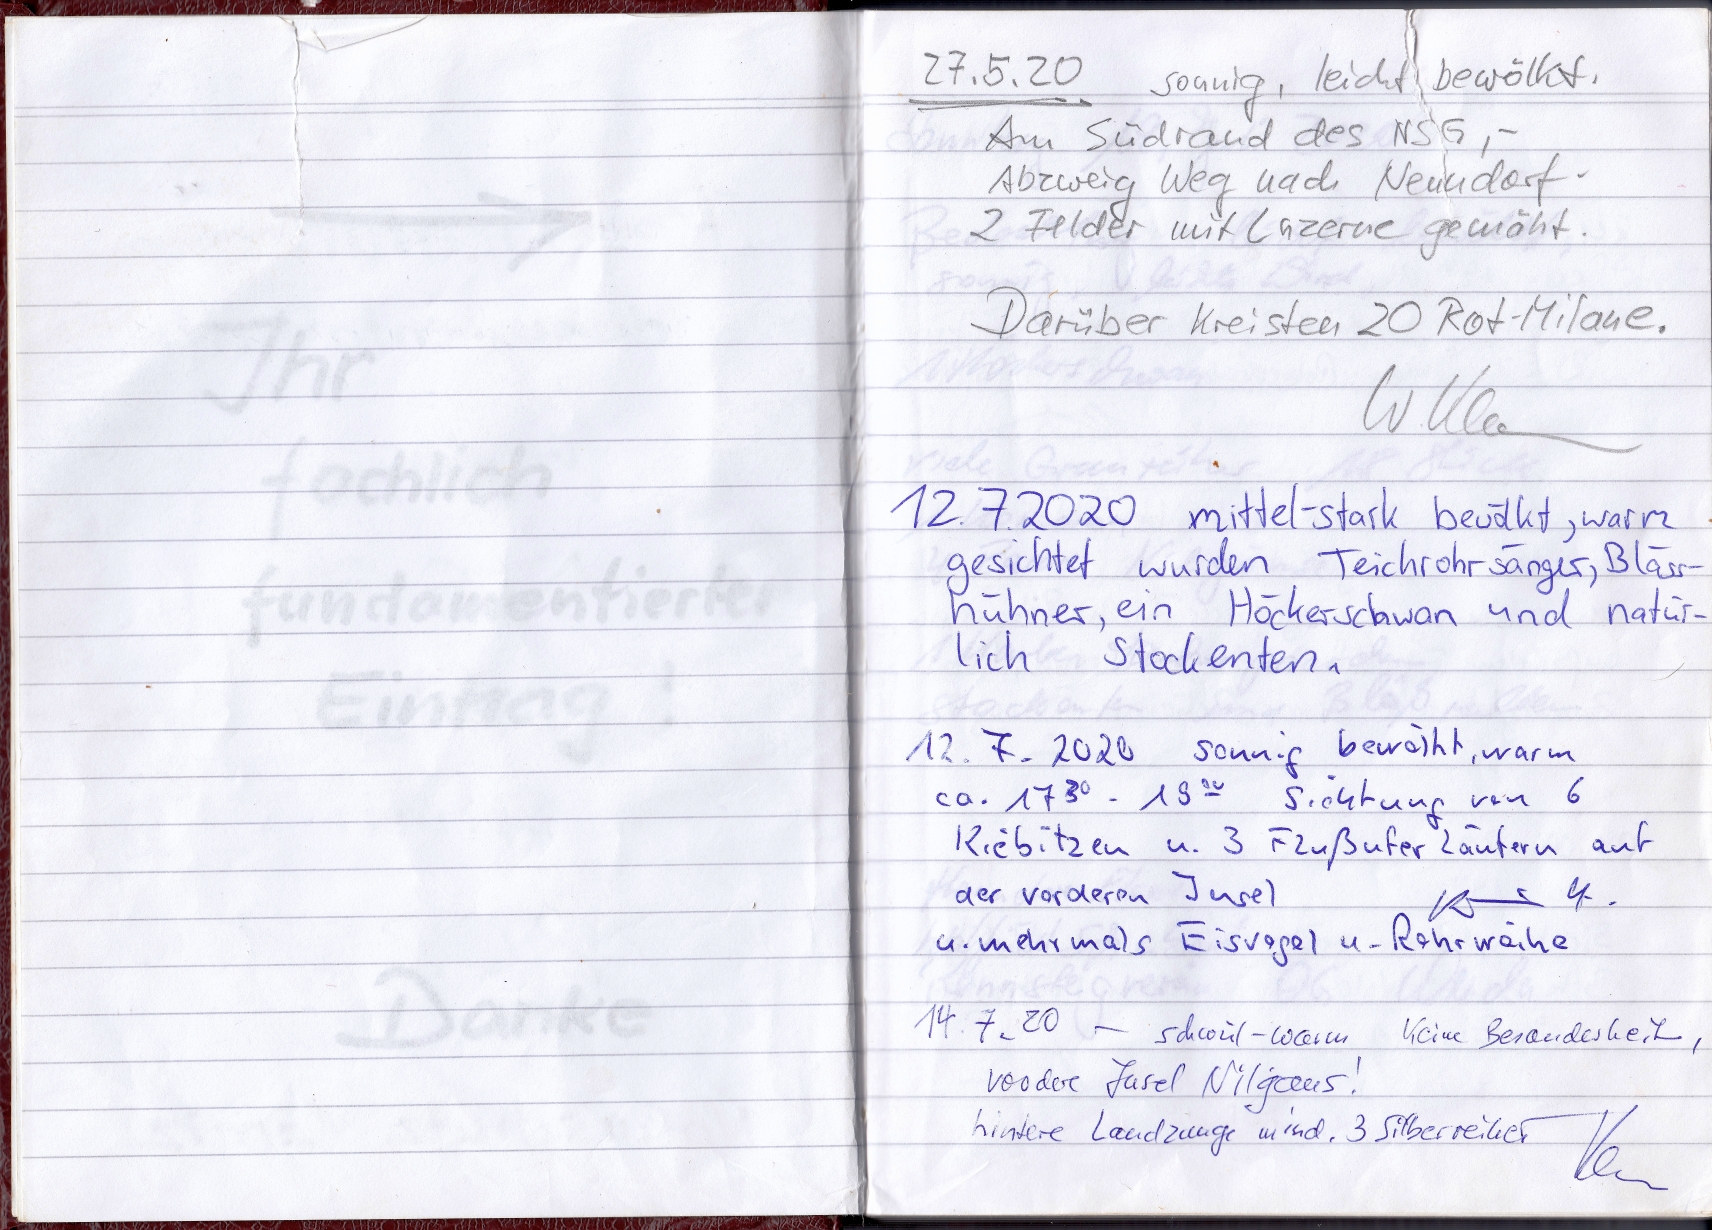 Ihr
fachlich
fundamentierter
Eintrag!
Danke
27.5.20 sonnig, leicht bewölkt.
Am Südrand des NSG,-
Abzweig Weg nach Nenndorf-
2 Felder mit Luzerne gemäht.
Darüber kreisten 20 Rot-Milane.
12.7.2020 mittel-stark bewölkt, warm
gesichtet wurden Teichrohrsänger, Bläss-
hühner, ein Höckerschwan und natür-
lich Stockenten.
12.7.2020 sonnig bewölkt, warm
ca. 17³⁰ - 19⁰⁰ Sichtung von 6
Kiebitzen u. 3 Flußuferläufern auf
der vorderen Insel
u. mehrmals Eisvogel u. Rohrweihe
14.7.20 - schwül-warm keine Besonderheit,
vordere Insel Nilgans!
hintere Landzunge mind. 3 Silberreiher